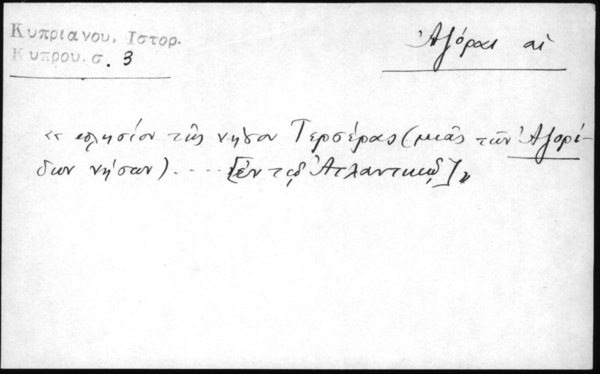 Κυπριανου, Ιστορ.
Κυπρου. σ. 3
Ἀζόραι αἱ
« πλησίον τῆς νήσου Τερσέρας (μιᾶς τῶν Ἀζορί-
δων νήσων) .... [ἐν τῷ Ἀτλαντικῷ] »